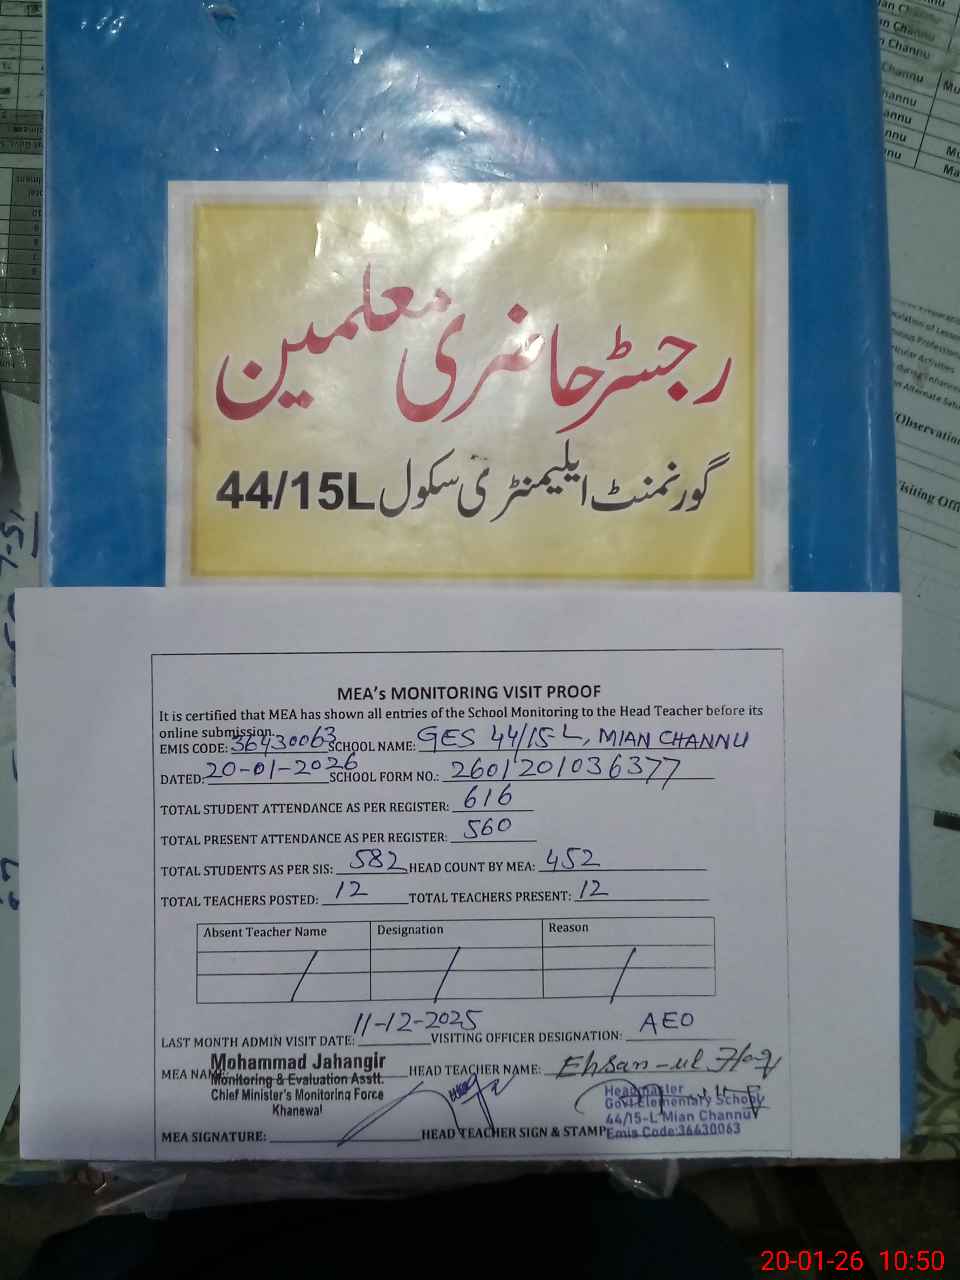 رجسٹر حاضری معلمین
گورنمنٹ ایلیمنٹری سکول 44/15L
MEA's MONITORING VISIT PROOF
It is certified that MEA has shown all entries of the School Monitoring to the Head Teacher before its
online submission.
EMIS CODE: 36430063 SCHOOL NAME: GES 44/15-L, MIAN CHANNU
DATED: 20-01-2026 SCHOOL FORM NO.: 2601201036377
TOTAL STUDENT ATTENDANCE AS PER REGISTER: 616
TOTAL PRESENT ATTENDANCE AS PER REGISTER: 560
TOTAL STUDENTS AS PER SIS: 582 HEAD COUNT BY MEA: 452
TOTAL TEACHERS POSTED: 12 TOTAL TEACHERS PRESENT: 12
Absent Teacher Name Designation Reason
LAST MONTH ADMIN VISIT DATE: 11-12-2025 VISITING OFFICER DESIGNATION: AEO
MEA NAME: Mohammad Jahangir HEAD TEACHER NAME: Ehsan-ul Haq
Monitoring & Evaluation Asstt.
Chief Minister's Monitoring Force
Khanewal
Headmaster
Govt Elementary School
44/15-L Mian Channu
Emis Code:36430063
MEA SIGNATURE: HEAD TEACHER SIGN & STAMP
20-01-26 10:50